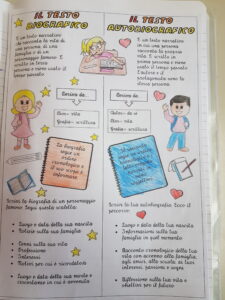 IL TESTO
BIOGRAFICO
È un testo narrativo
che racconta la vita di
una persona di una
famiglia o di un
personaggio famoso. È
scritto in terza
persona e viene usato il
tempo passato.
Deriva da...
Bios = vita
Grafia = scrittura
La biografia
segue un
ordine
cronologico e il
suo scopo è
informare
Scrivi la biografia di un personaggio
famoso. Segui questa scaletta:
Luogo e data della sua nascita
Notizie sulla sua famiglia
Cenni sulla sua vita
Professione
Interessi
Motivi per cui è ricordato/a
Luogo e data della sua morte e
IL TESTO
AUTOBIOGRAFICO
È un testo narrativo
in cui una persona
racconta la propria
vita. È scritto in
prima persona e viene
usato il tempo passato.
L'autore e il
protagonista sono la
stessa persona.
Deriva da...
Autos = da sé
Bios = vita
Grafia = scrittura
Scrivi la tua autobiografia. Ecco il
percorso:
Luogo e data della tua nascita
Informazioni sulla tua
famiglia in quel momento
Racconto cronologico della tua
vita con accenno alla famiglia,
agli amici, alla scuola, ai tuoi
interessi, passioni e sogni.
Riflessione sulla tua vita e
obiettivi per il futuro